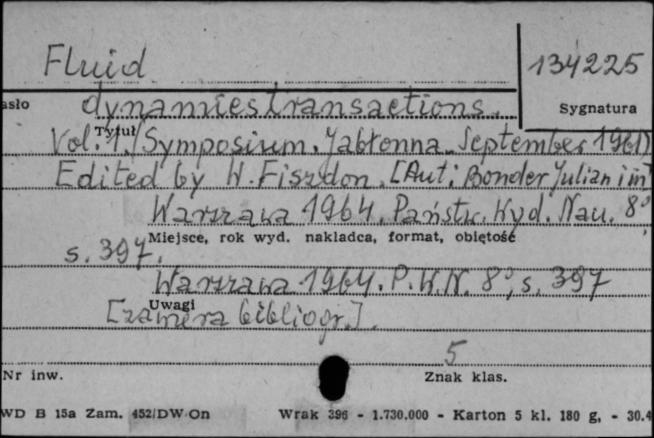 Fluid
134225
asło
dynamics transactions.
Sygnatura
Tytuł
Vol. 1. /Symposium. Jabłonna. September 1961/
Edited by W. Fiszdon. [Aut: Bonder Julian i in]
Warszawa 1964. Państw. Wyd. Nau. 8°,
Miejsce, rok wyd. nakładca, format, objętość
s. 397.
Warszawa 1964. P.W.N. 8°, s. 397
Uwagi
[zawiera bibliogr.].
5
Nr inw.
Znak klas.
WD B 15a Zam. 452/DW On Wrak 396 - 1.730.000 - Karton 5 kl. 180 g, - 30.4